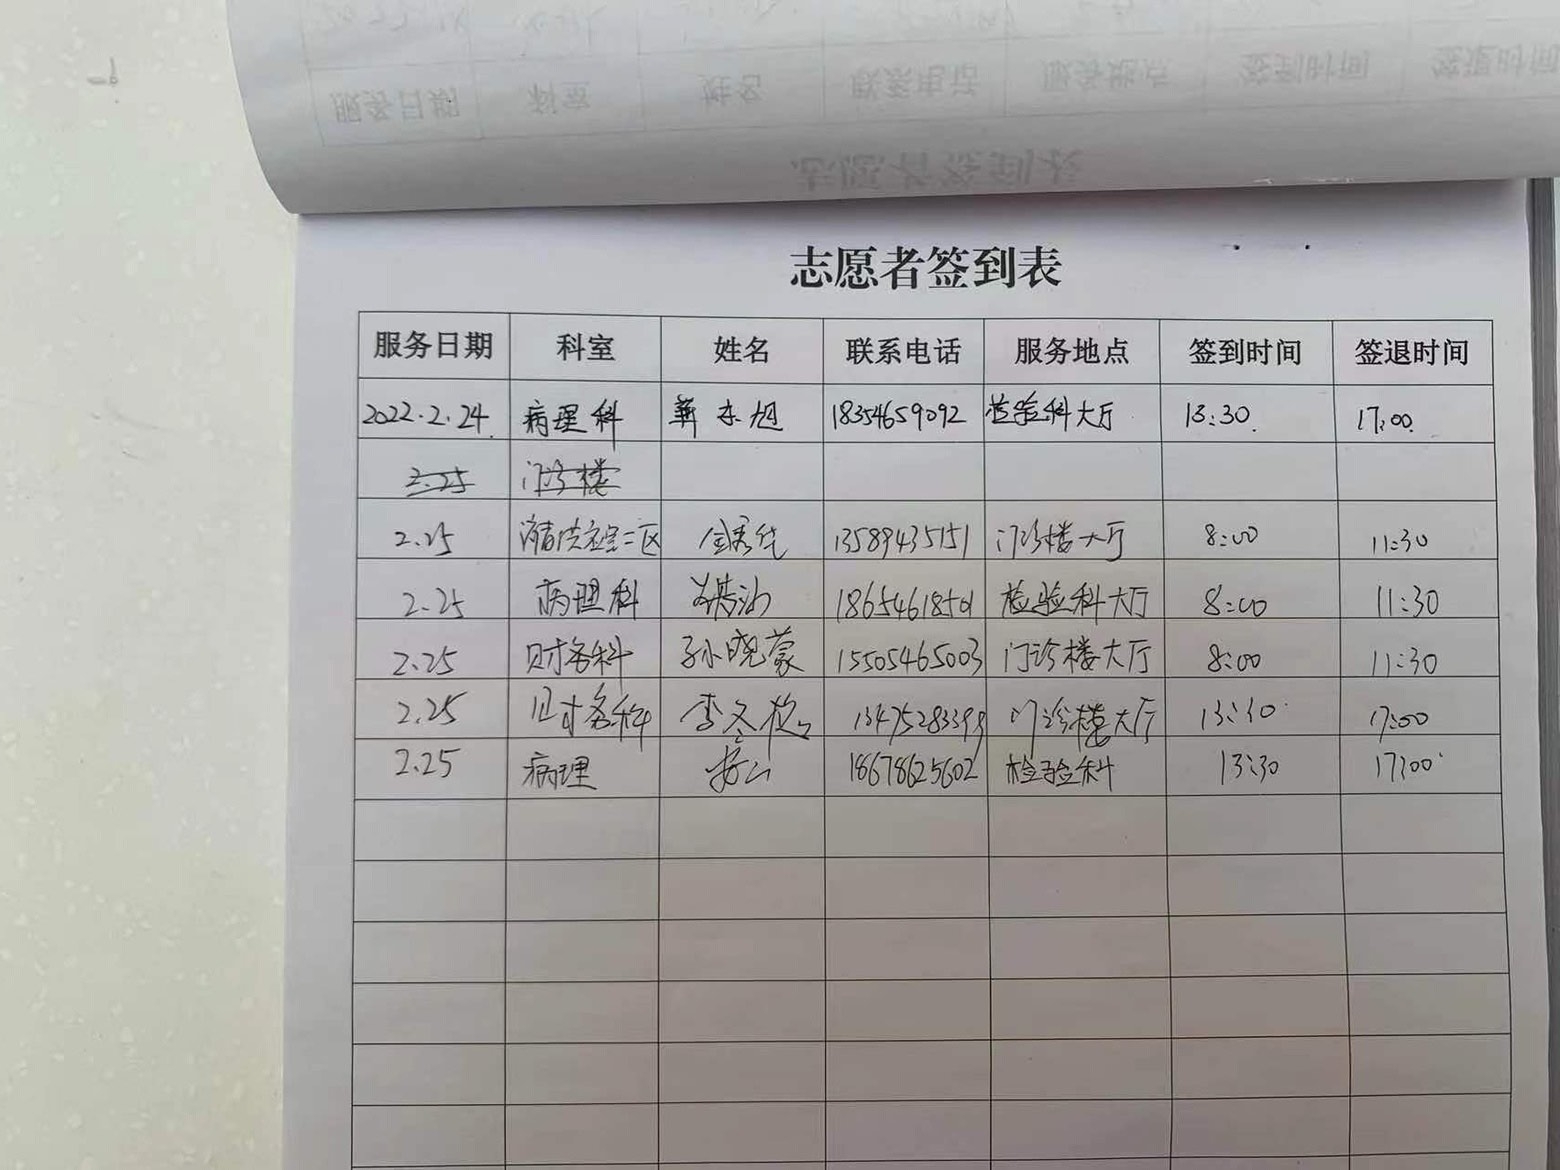 志愿者签到表
服务日期 科室 姓名 联系电话 服务地点 签到时间 签退时间
2022.2.24. 病理科 东旭 18354659092 检验科大厅 13:30. 17:00.
2.25 门诊楼
2.25 二区 13589435151 门诊楼大厅 8:00 11:30
2.25 病理科 18654618501 检验科大厅 8:00 11:30
2.25 财务科 孙晓蒙 15505465003 门诊楼大厅 8:00 11:30
2.25 财务科 李冬 13475283399 门诊楼大厅 13:30 17:00
2.25 病理 18678625602 检验科 13:30 17:00